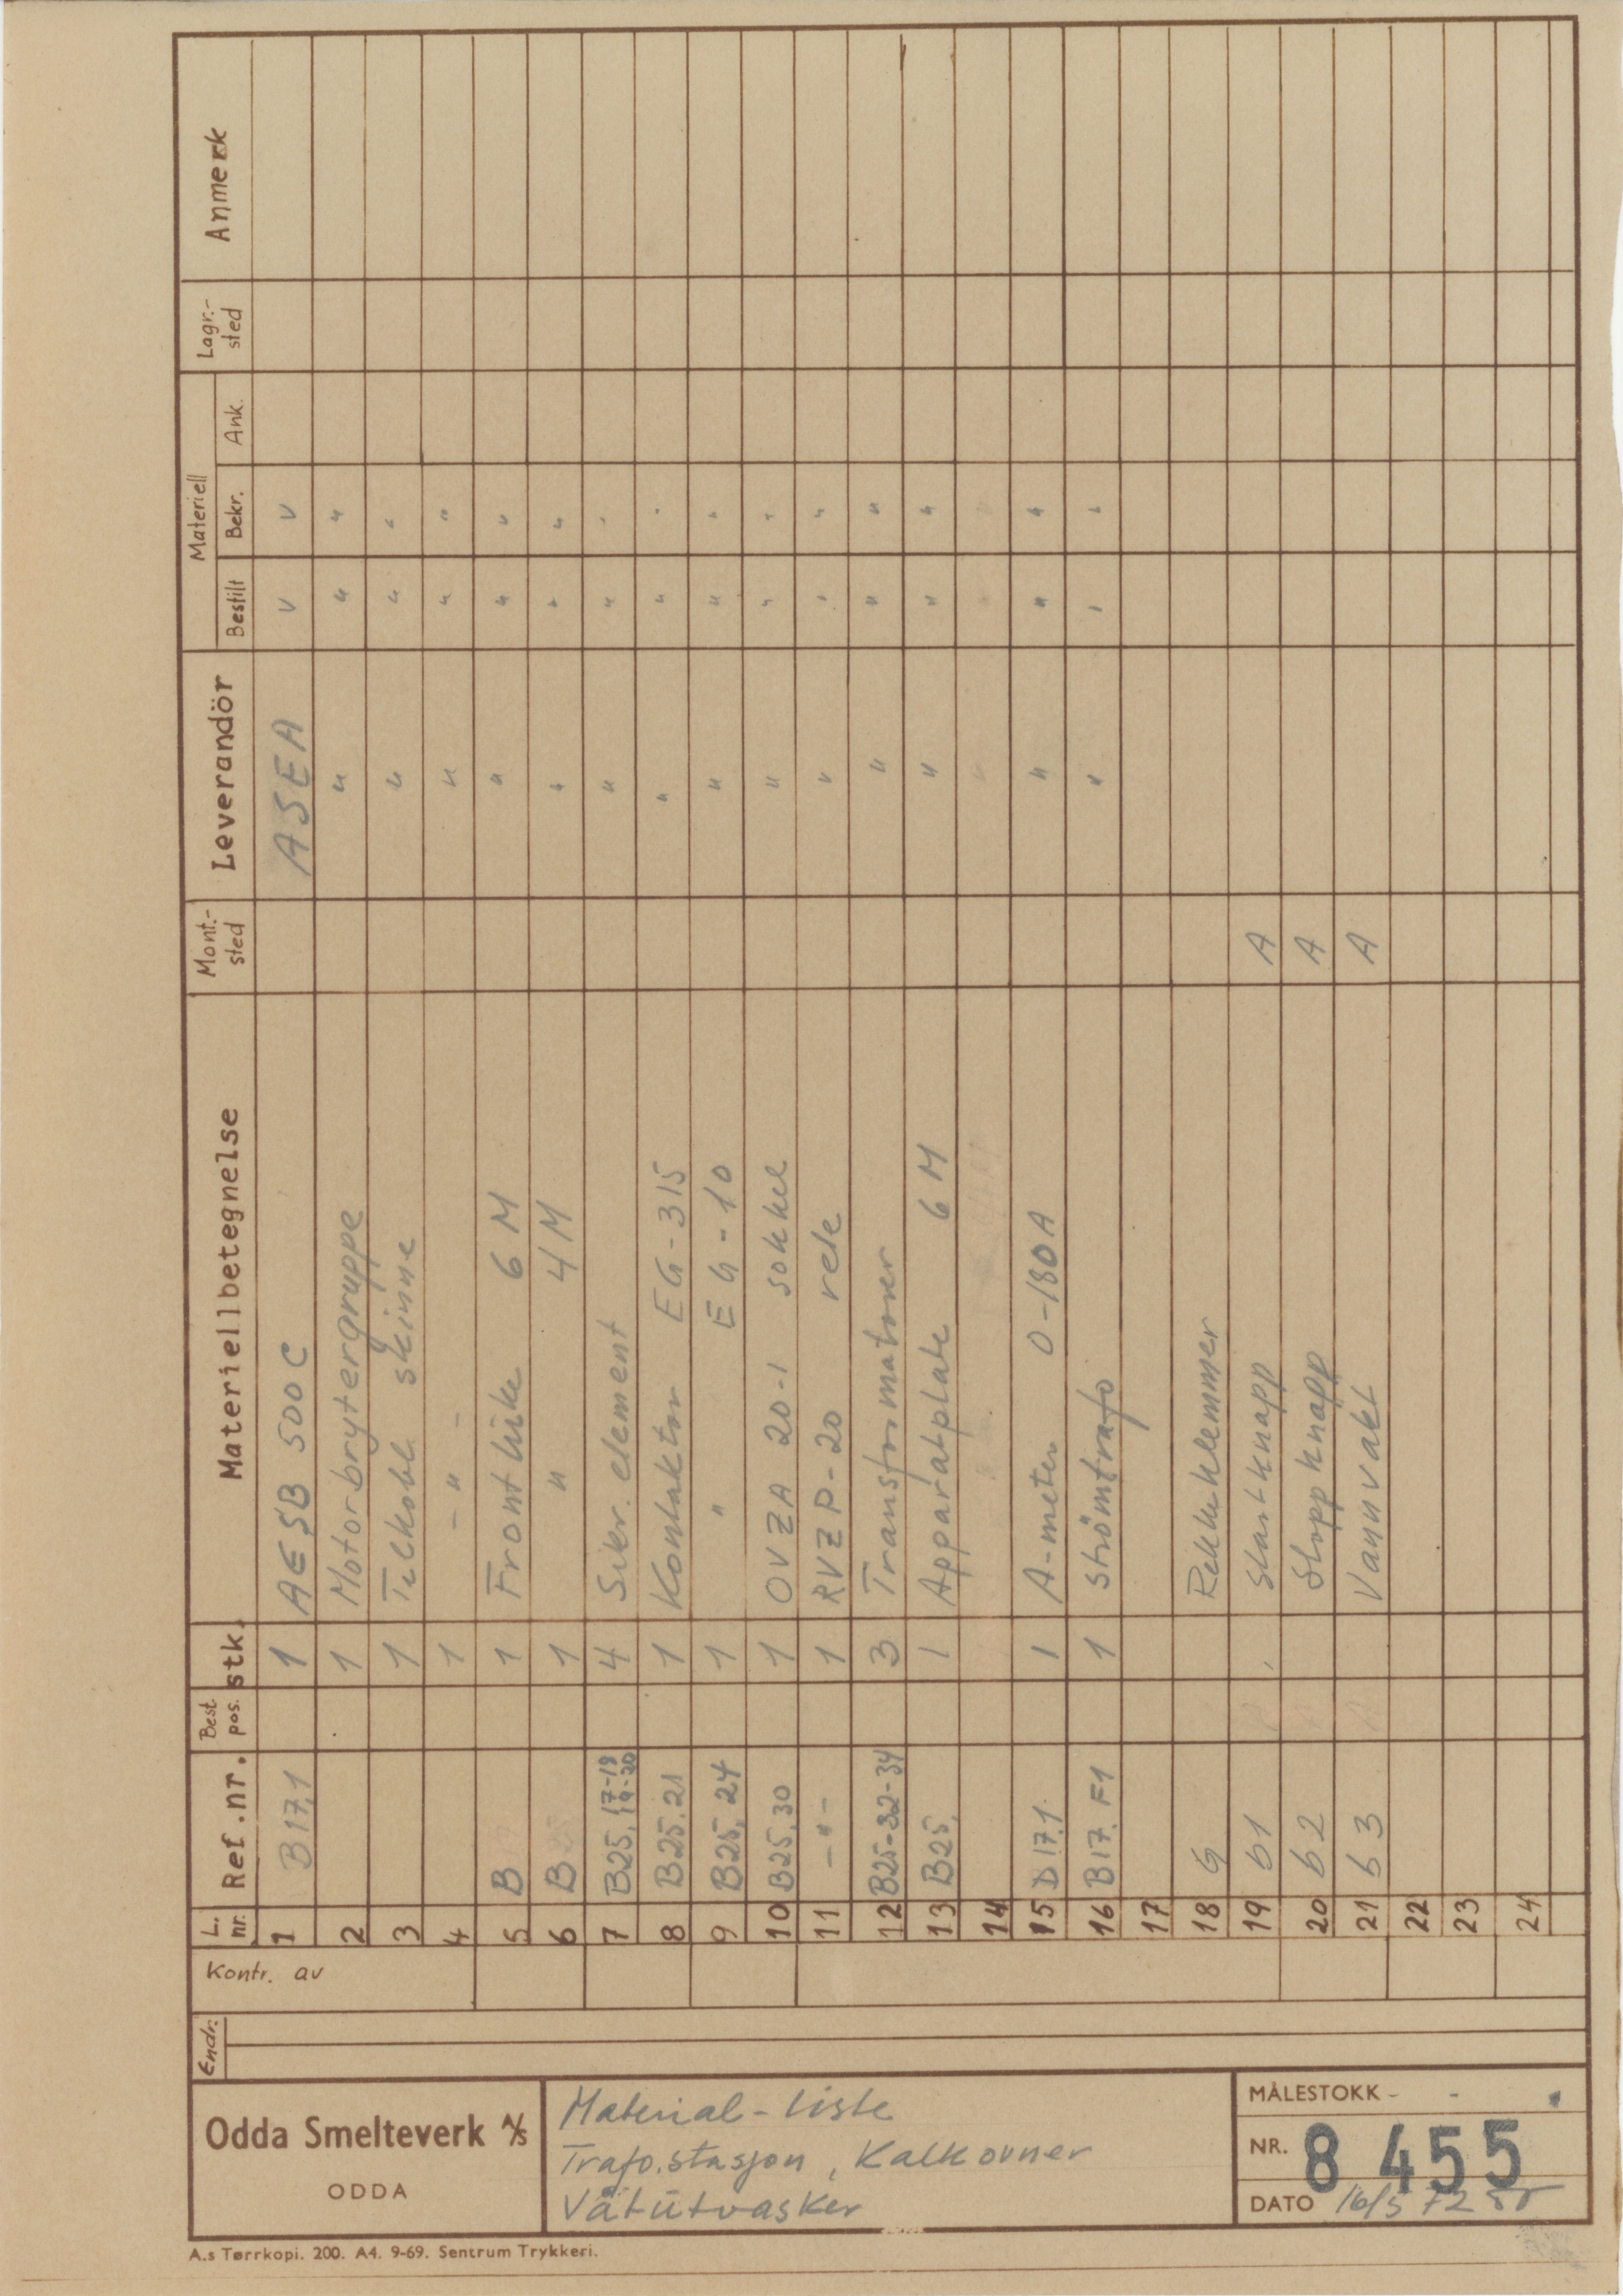 L. nr. Ref.nr. Best pos. stk. Materiellbetegnelse Mont.-sted Leverandör Materiell Bestilt Bekr. Ank. Lagr.-sted Anmerk
1 B17,1 1 AESB 500 C ASEA v v
2 1 Motorbrytergruppe " " "
3 1 Tilkobl. skinne " " "
4 1 - " - " " "
5 B 1 Frontluke 6 M " " "
6 B 1 " 4 M " " "
7 B25, 17-18 19-20 4 Sikr. element " " "
8 B25.21 1 Kontaktor EG-315 " " "
9 B25, 24 1 " EG-10 " " "
10 B25,30 1 OVZA 20-1 sokkel " " "
11 -"- 1 RVZP-20 rele " " "
12 B25-32-34 3 Transformatorer " " "
13 B25, 1 Apparatplate 6 M " " "
14
15 D17.1. 1 A-meter 0-180A " " "
16 B17. F1 1 Strömtrafo " " "
17
18 G Rekkeklemmer
19 b1 Startknapp A
20 b2 Stoppknapp A
21 b3 Vannvakt A
22
23
24
Kontr. av
Endr.
Odda Smelteverk A/S
ODDA
Material-liste
Trafo.stasjon, Kalkovner
Våtutvasker
MÅLESTOKK - -
NR. 8 455
DATO 16/5 72
A.s Tørrkopi. 200. A4. 9-69. Sentrum Trykkeri.